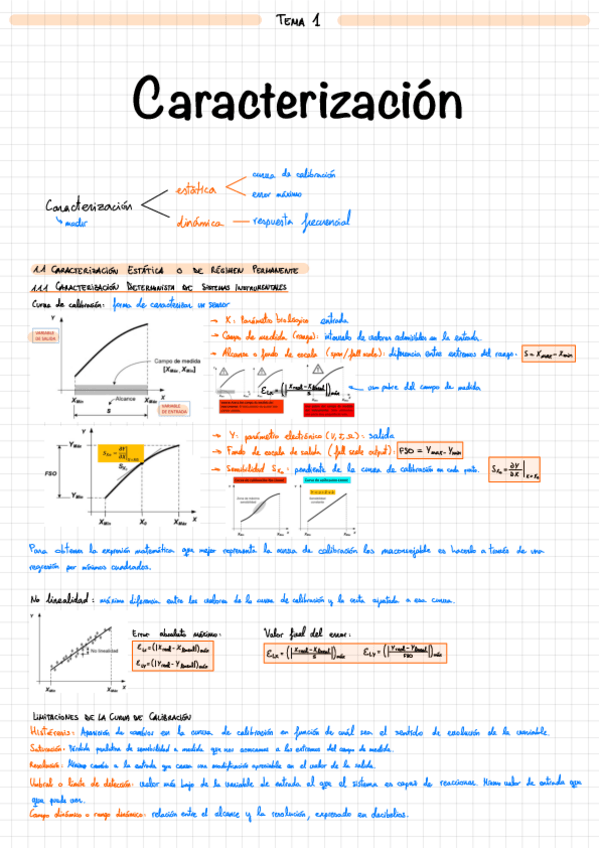 TEMA 1
Caracterización
Caracterización
medir
estática
curva de calibración
error máximo
dinámica
respuesta frecuencial
1.1 CARACTERIZACIÓN ESTÁTICA O DE RÉGIMEN PERMANENTE
1.1.1 CARACTERIZACIÓN DETERMINISTA DE SISTEMAS INSTRUMENTALES
Curva de calibración: forma de caracterizar un sensor
Y
VARIABLE DE SALIDA
Campo de medida
[XMin, XMax]
XMin
Alcance
XMax
X
S
VARIABLE DE ENTRADA
→ X: Parámetro biológico entrada
→ Campo de medida (range): intervalo de valores admisibles en la entrada.
→ Alcance o fondo de escala (span/full scale): diferencia entre extremos del rango. S = Xmax - Xmin
ELX = (|Xreal - Xlineal| / S)máx
con pobre del campo de medida
Y
YMax
FSO
YMin
SX0 = ∂Y/∂X |X=X0
SX0
XMin
X0
XMax
X
→ Y: parámetro electrónico (V, I, Ω): salida
→ Fondo de escala de salida (full scale output): FSO = Ymax - Ymin
→ Sensibilidad SX0: pendiente de la curva de calibración en cada punto. SX0 = ∂Y/∂X |X=X0
Curva de calibración no lineal
Curva de calibración lineal
Para obtener la expresión matemática que mejor representa la curva de calibración lo más aconsejable es hacerlo a través de una
regresión por mínimos cuadrados.
No linealidad: máxima diferencia entre los valores de la curva de calibración y la recta ajustada a esa curva.
Y
No linealidad
XMin
XMax
X
Error absoluto máximo:
ELX = (|Xreal - Xlineal|)máx
ELY = (|Yreal - Ylineal|)máx
Valor final del error:
ELX = (|Xreal - Xlineal| / S)máx
ELY = (|Yreal - Ylineal| / FSO)máx
LIMITACIONES DE LA CURVA DE CALIBRACIÓN
Histéresis: Aparición de cambios en la curva de calibración en función de cuál sea el sentido de evolución de la variable.
Saturación: Pérdida paulatina de sensibilidad a medida que nos acercamos a los extremos del campo de medida.
Resolución: Mínimo cambio a la entrada que causa una modificación apreciable en el valor de la salida.
Umbral o límite de detección: valor más bajo de la variable de entrada al que el sistema es capaz de reaccionar. Mínimo valor de entrada que
que puede ver.
Campo dinámico o rango dinámico: relación entre el alcance y la resolución, expresado en decibelios.